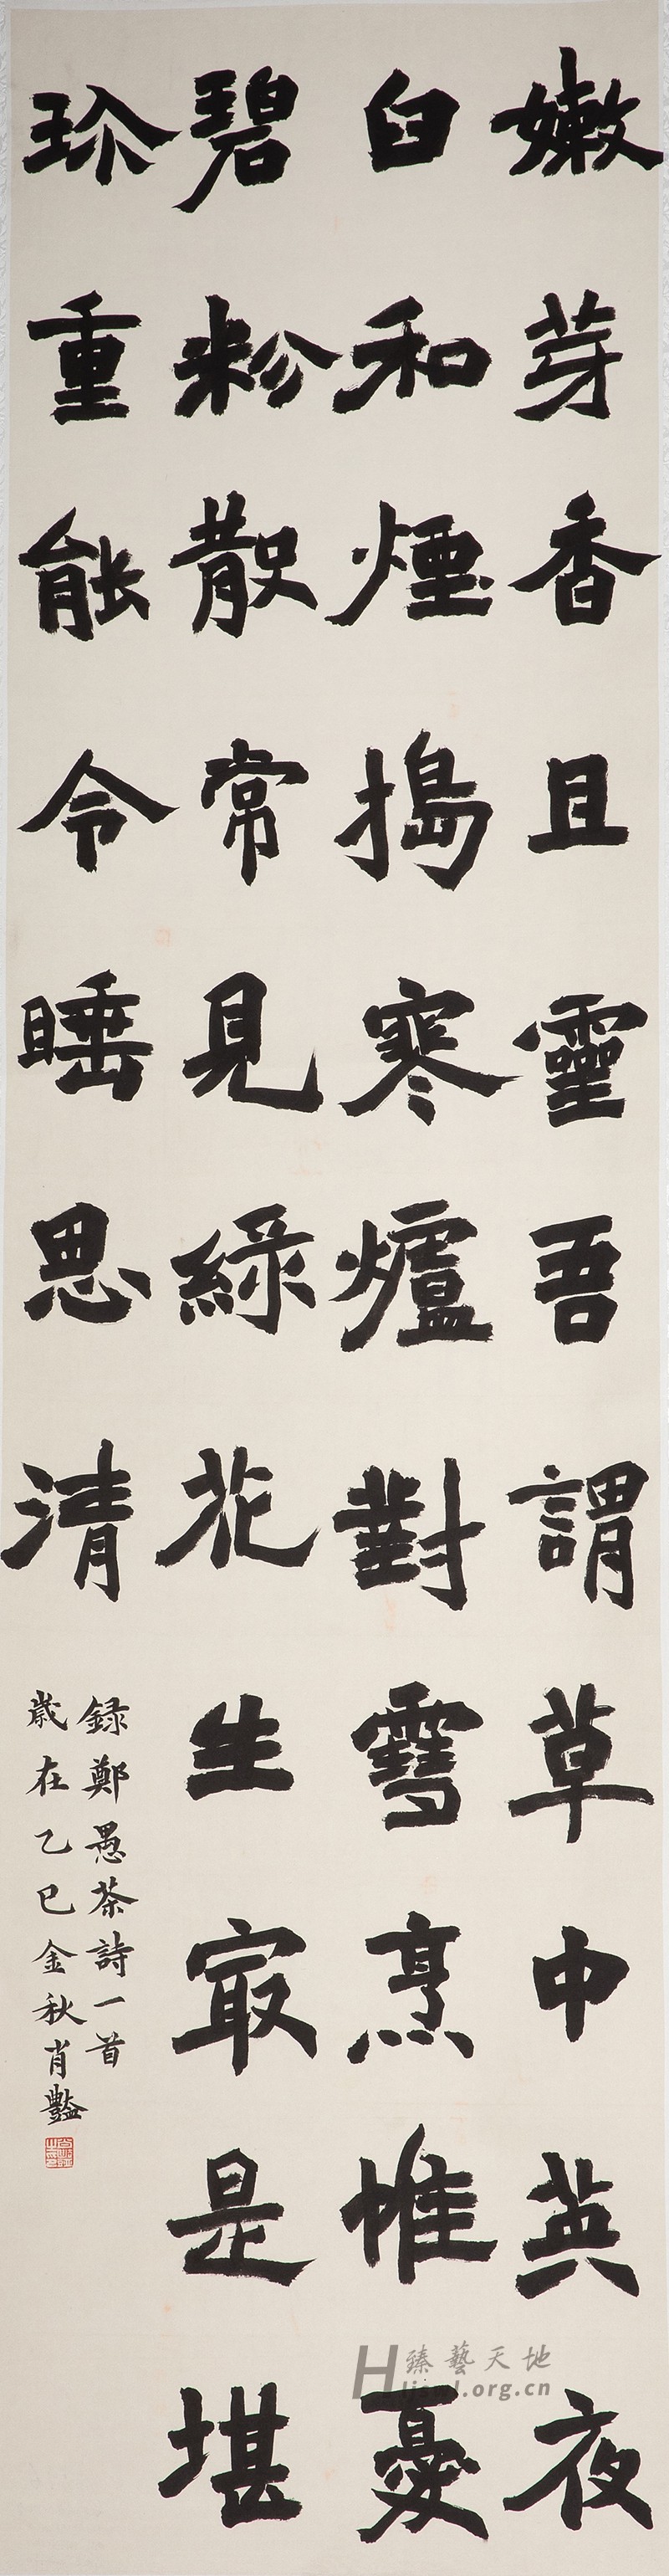 嫩芽香且靈吾謂草中英夜
臼和煙搗寒爐對雪烹惟憂
碧粉散常見綠花生㝡是堪
珎重能令睡思清
録鄭愚茶詩一首
歲在乙巳金秋肖豔
臻藝天地